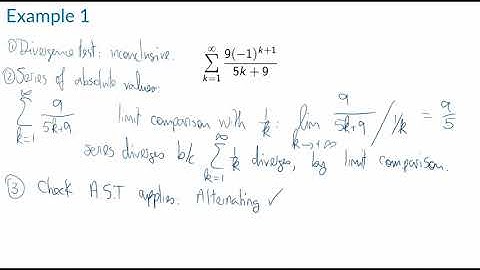 Example 1
① Divergence test: inconclusive. ∑_{k=1}^{∞} 9(-1)^{k+1} / (5k + 9)
② Series of absolute values:
∑_{k=1}^{∞} 9/(5k+9) limit comparison with 1/k : lim_{k→+∞} 9/(5k+9) / 1/k = 9/5
series diverges b/c ∑_{k=1}^{∞} 1/k diverges, by limit comparison.
③ Check A.S.T applies. Alternating ✓